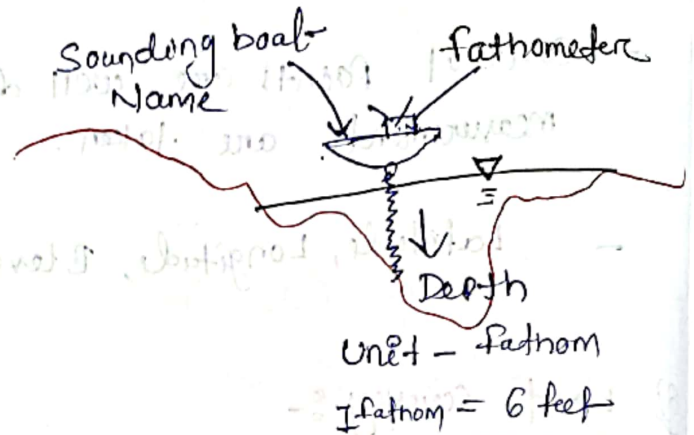 Sounding boat
Name
fathometer
Depth
Unit - fathom
1 fathom = 6 feet